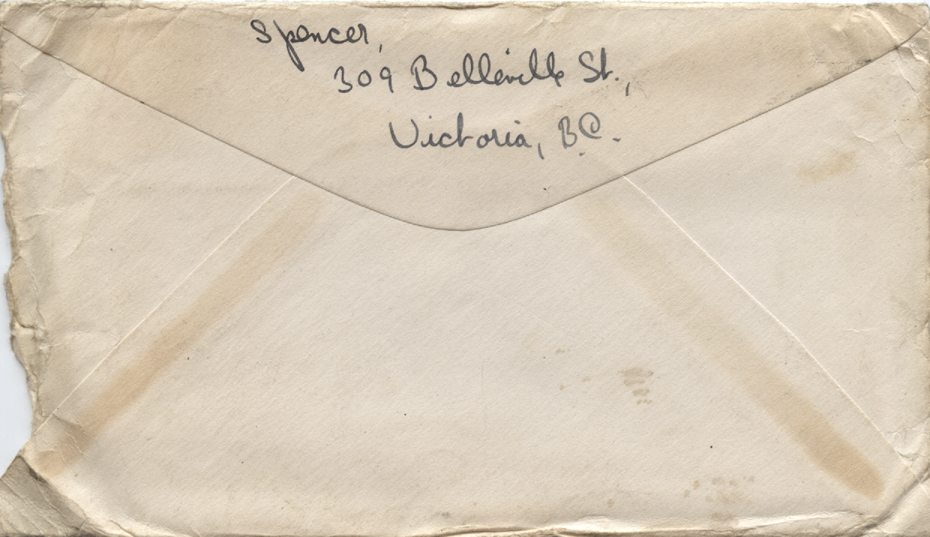 Spencer,
309 Belleville St.,
Victoria, B.C.